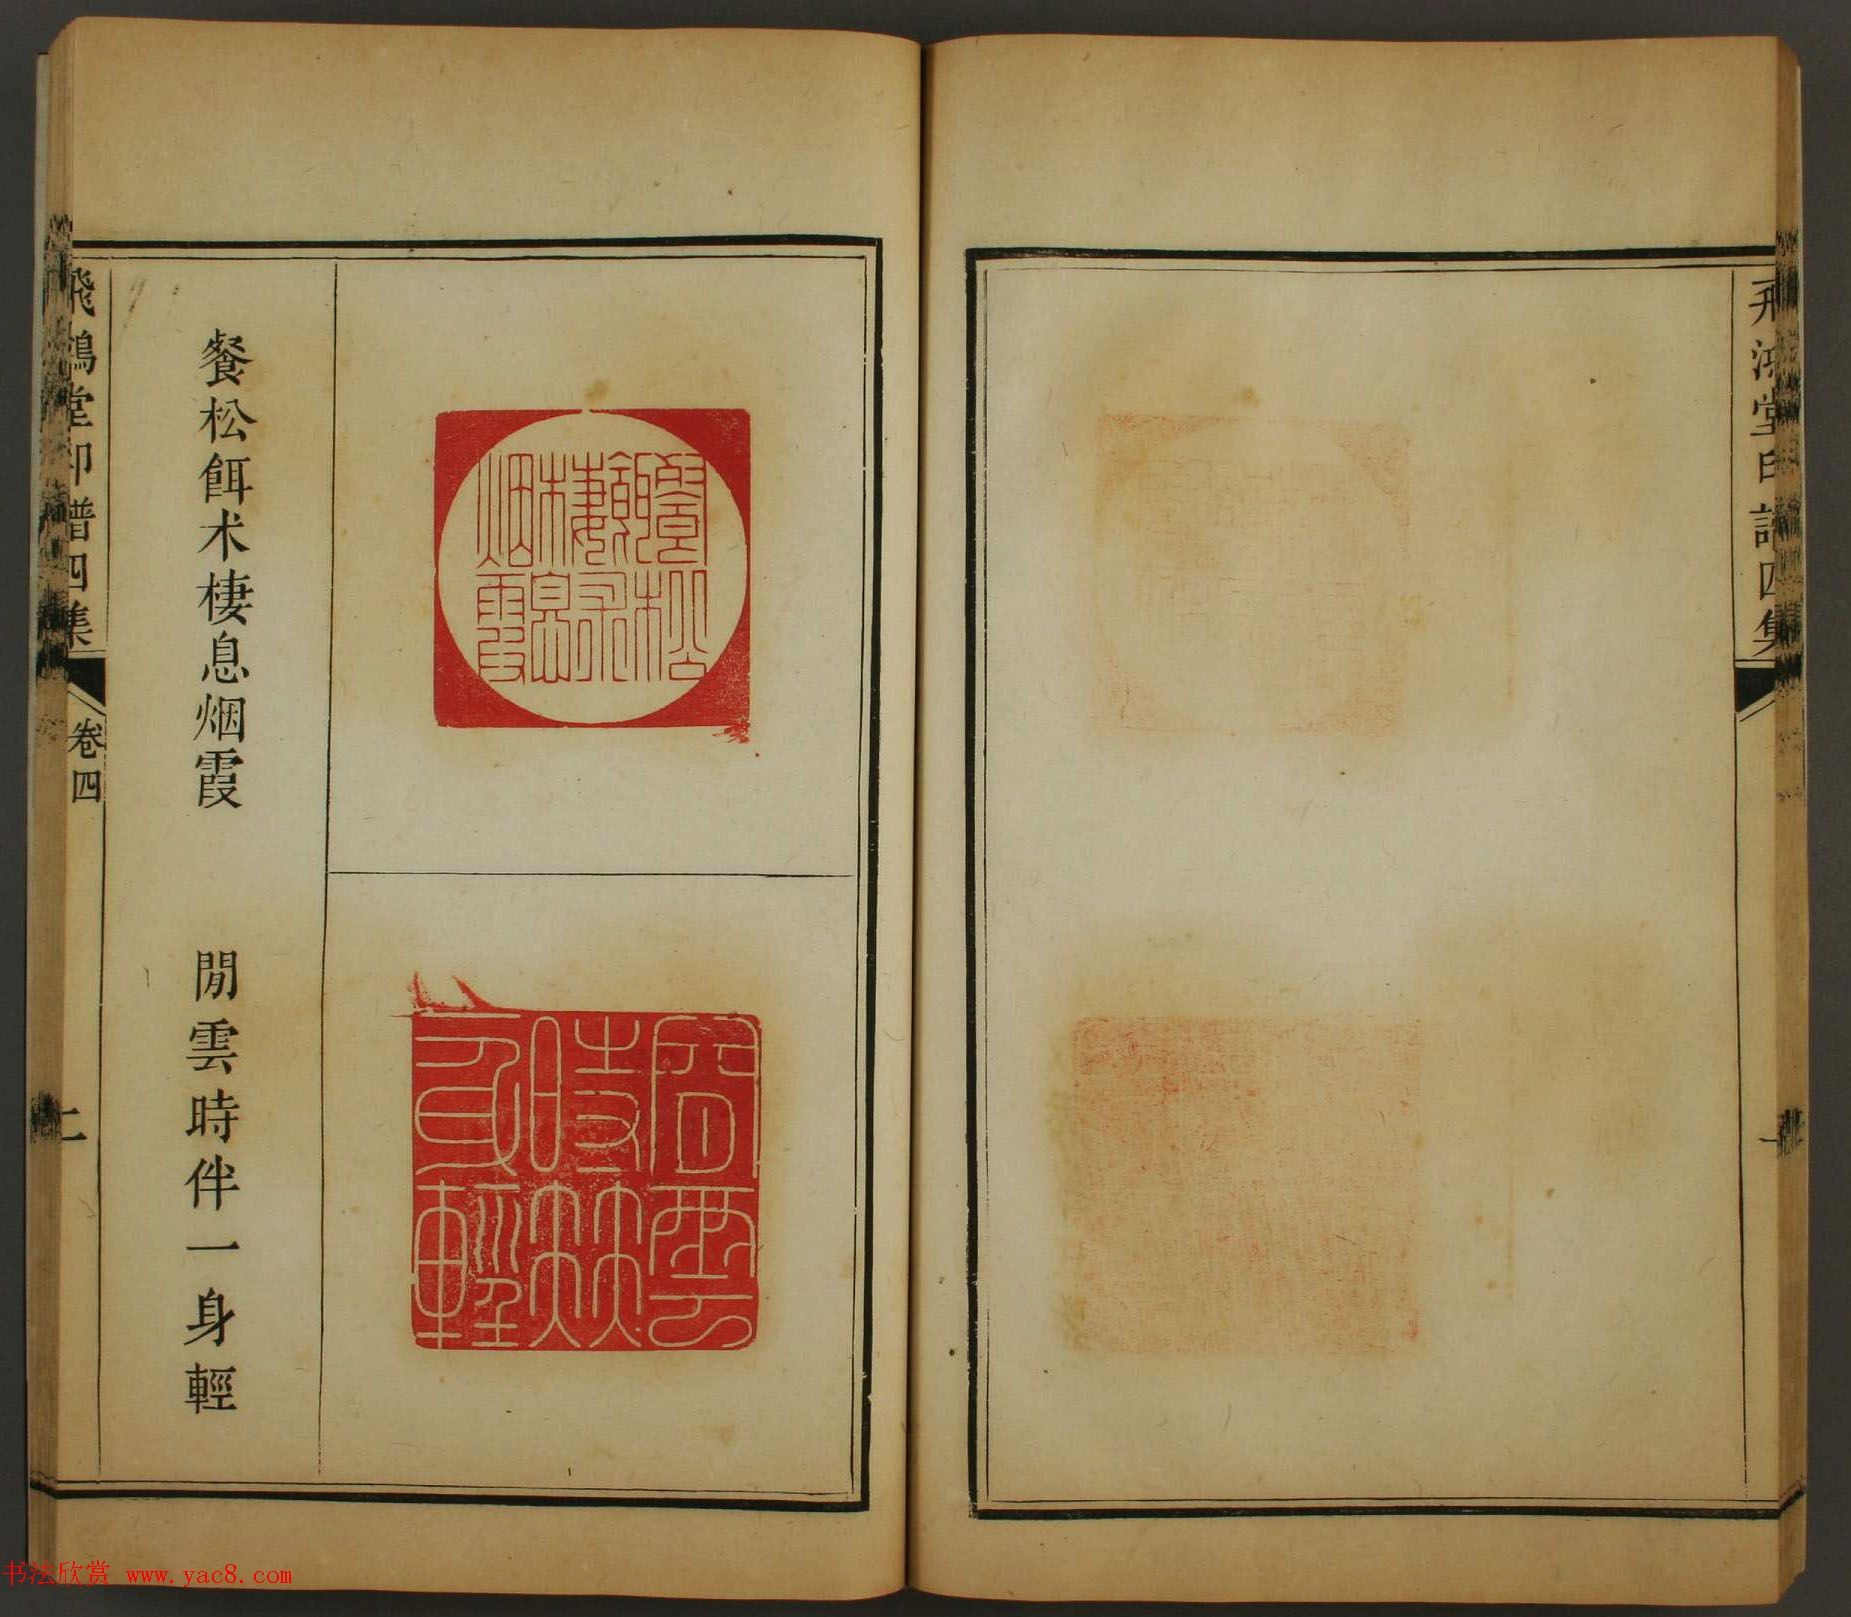 飛鴻堂印譜四集
飛鴻堂印譜四集
卷四
餐松餌朮棲息烟霞
閒雲時伴一身輕
书法欣赏 www.yac8.com